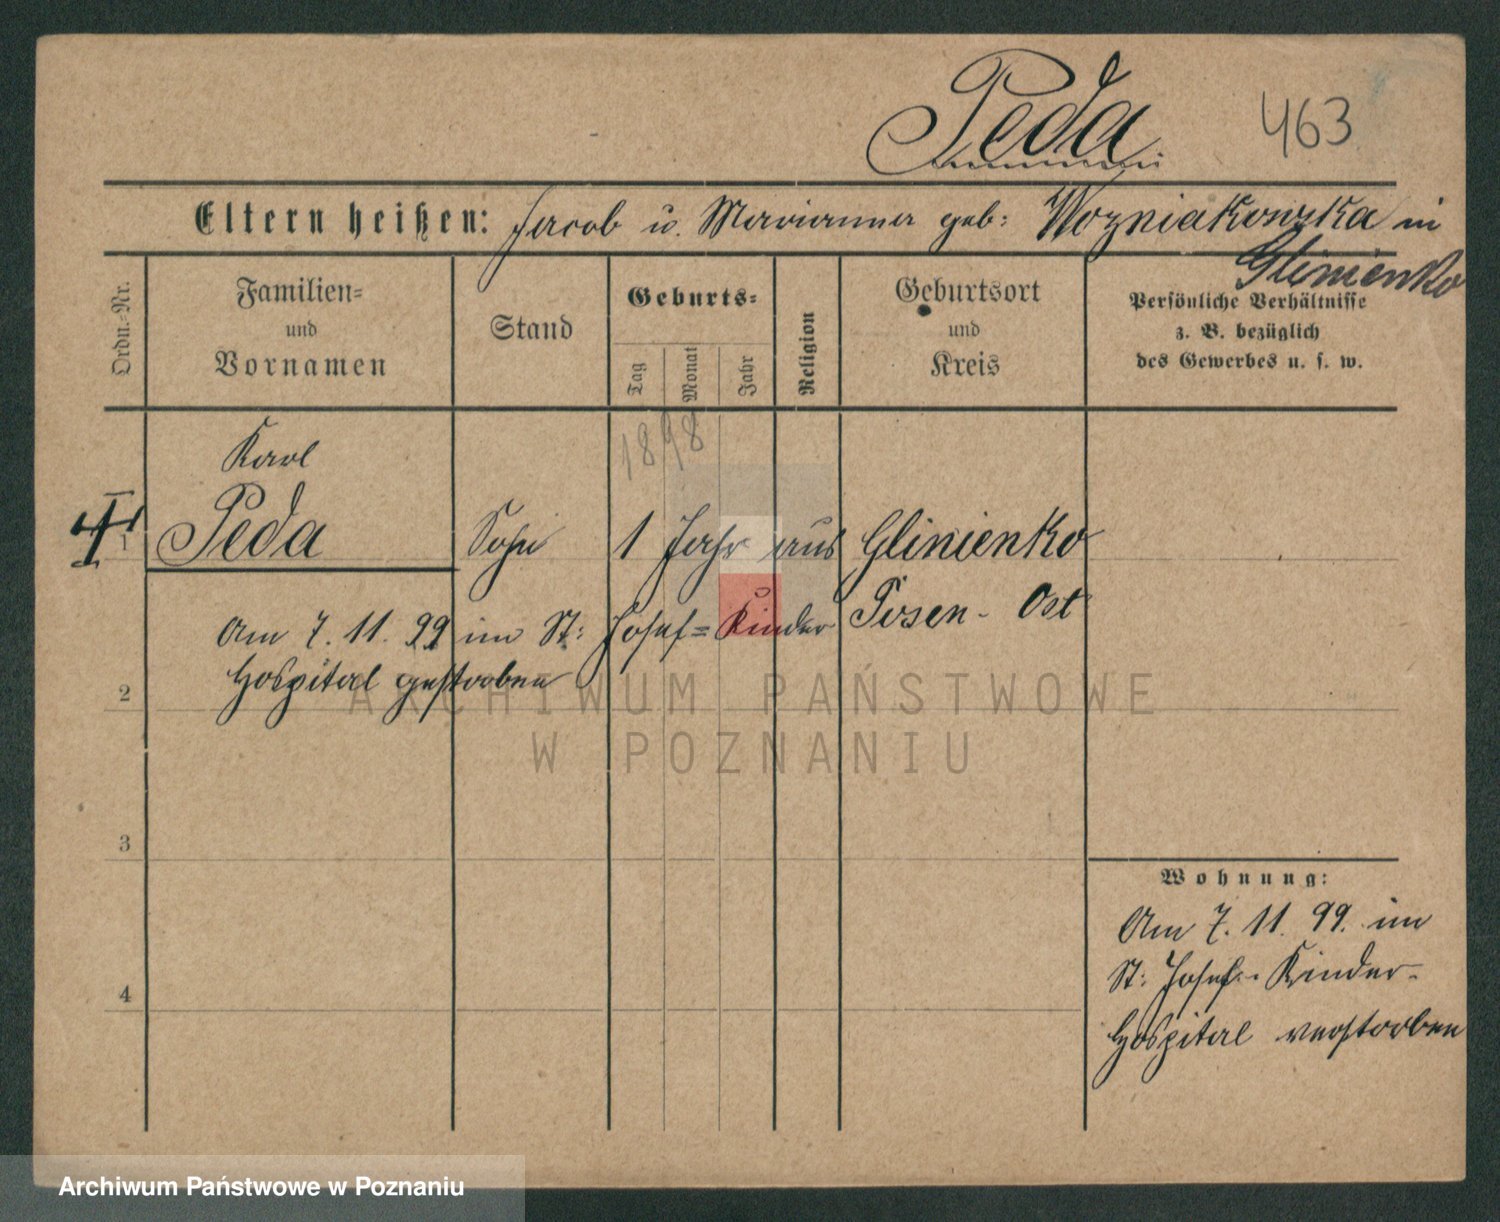 Peda 463
Eltern heißen: Jacob u. Marianna geb: Wozniakowska in
Glinienko
Ordn.-Nr.
Familien-
und
Vornamen
Stand
Geburts-
Tag
Monat
Jahr
Religion
Geburtsort
und
Kreis
Persönliche Verhältnisse
z. B. bezüglich
des Gewerbes u. s. w.
1898
Karl
1 Peda Sohn 1 Jahr aus Glinienko
Posen-Ost
Am 7. 11. 99 im St: Josef=Kinder
Hospital gestorben
2
3
4
Wohnung:
Am 7. 11. 99. im
St: Josef-Kinder-
Hospital verstorben
ARCHIWUM PAŃSTWOWE
W POZNANIU
Archiwum Państwowe w Poznaniu